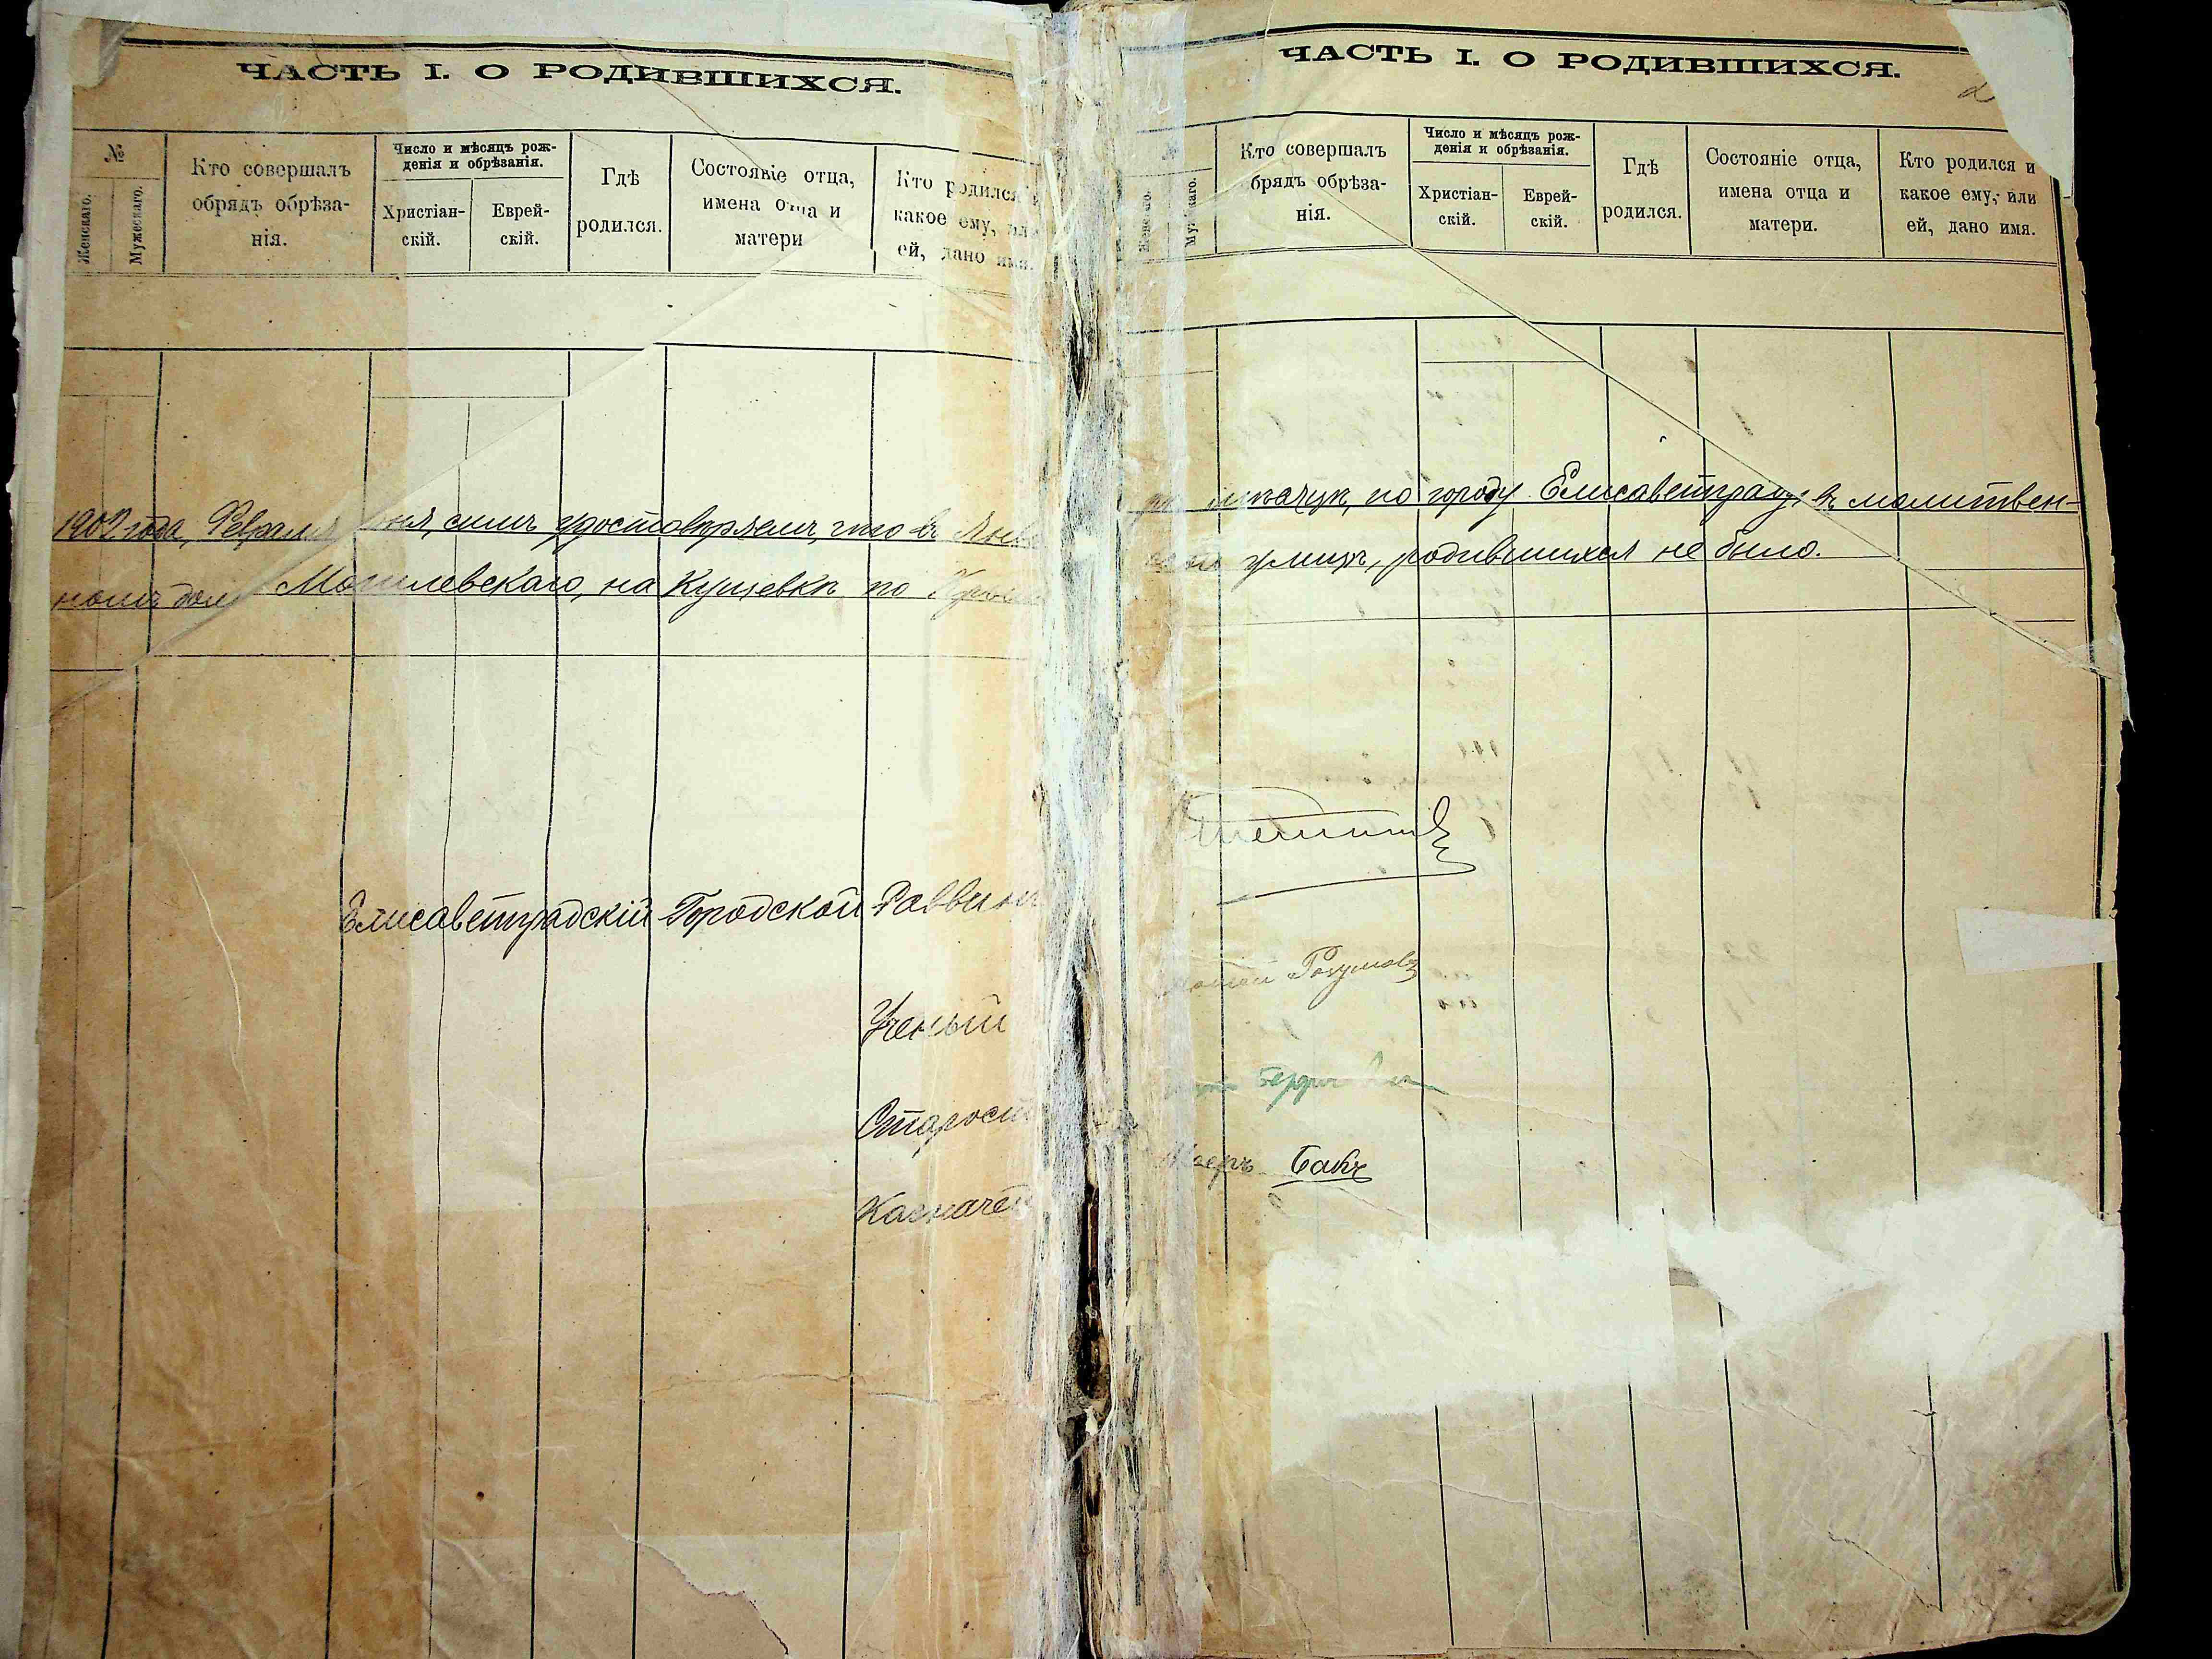 ЧАСТЬ I. О РОДИВШИХСЯ.
№
Женскаго.
Мужескаго.
Кто совершалъ
обрядъ обрѣза-
нія.
Число и мѣсяцъ рож-
денія и обрѣзанія.
Христіан-
скій.
Еврей-
скій.
Гдѣ
родился.
Состояніе отца,
имена отца и
матери
Кто родился
какое ему, или
ей, дано имя.
1902 года, Февраля дня, симъ удостовѣряемъ, что въ Янва
номъ домѣ Могилевскаго, на Кущевкѣ по
Елисаветградскій Городской Раввинъ
Ученый
Староста
Казначей
ЧАСТЬ I. О РОДИВШИХСЯ.
2
№
Женскаго.
Мужскаго.
Кто совершалъ
брядъ обрѣза-
нія.
Число и мѣсяцъ рож-
денія и обрѣзанія.
Христіан-
скій.
Еврей-
скій.
Гдѣ
родился.
Состояніе отца,
имена отца и
матери.
Кто родился и
какое ему, или
ей, дано имя.
по городу Елисаветграду, въ молитвен-
улицѣ, родившихся не было.
Разумовъ
Бакъ